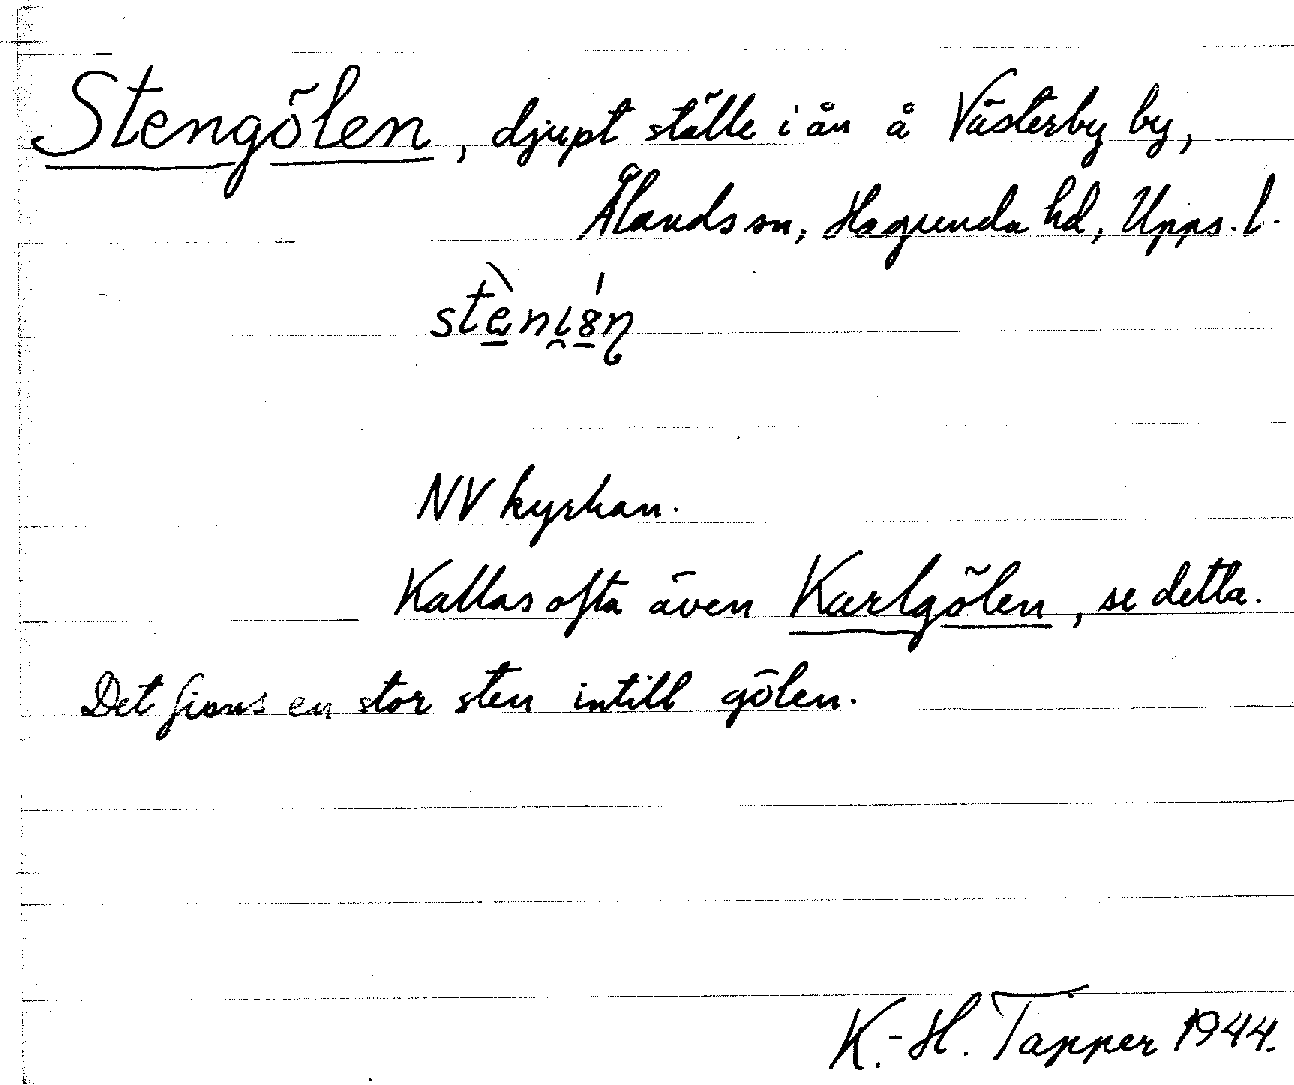 Stengölen, djupt ställe i ån å Västerby by,
Ålands sn, Hagunda hd, Upps. l.
NV kyrkan.
Kallas ofta även Karlgölen, se detta.
Det finns en stor sten intill gölen.
K.-H. Tapper 1944.